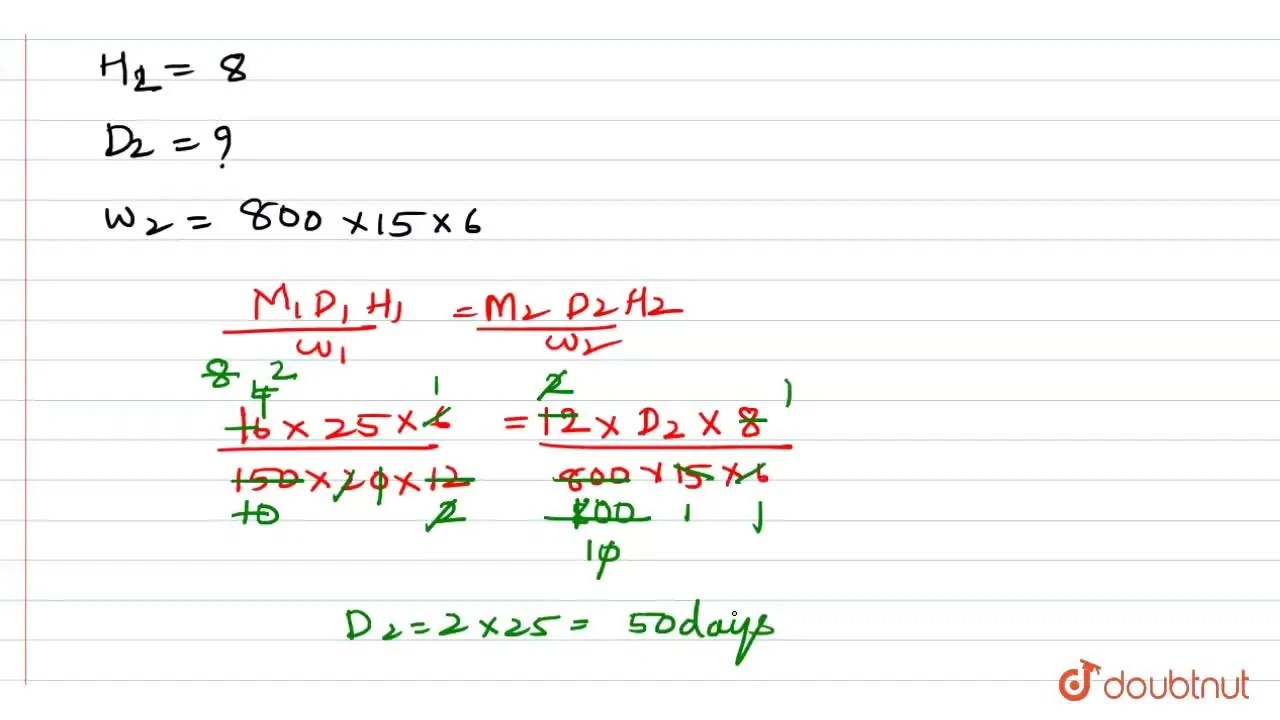 H2 = 8
D2 = ?
W2 = 800 × 15 × 6
M1 D1 H1 = M2 D2 H2
W1 W2
8 4 2 1 2 1
16 × 25 × 6 = 12 × D2 × 8
150 × 20 × 12 800 × 15 × 6
10 2 100 1 1
10
D2 = 2 × 25 = 50 days
doubtnut